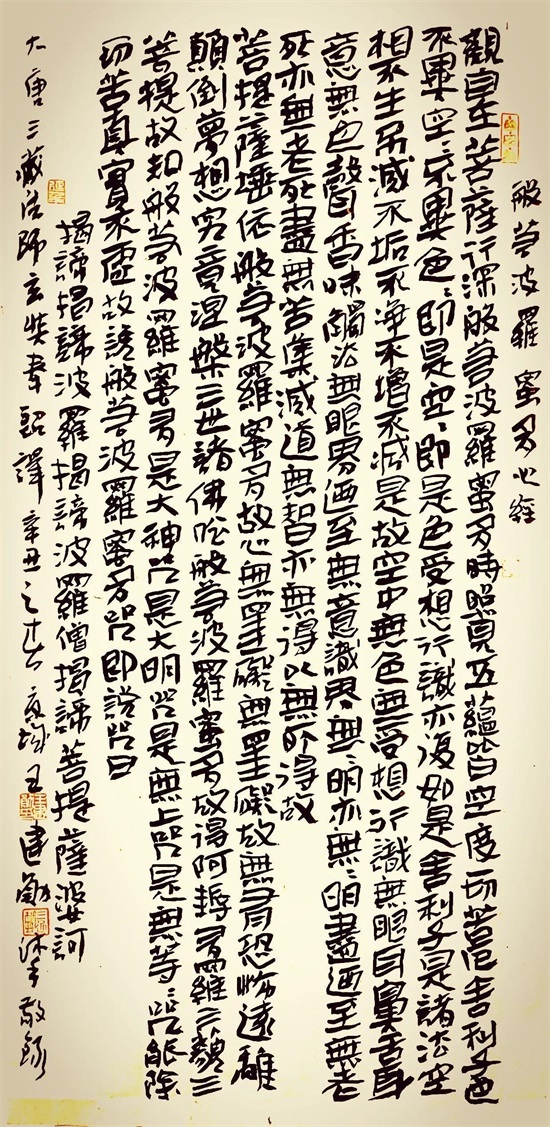 般若波羅蜜多心經
觀自在菩薩行深般若波羅蜜多時照見五蘊皆空度切苦厄舍利子色
不異空〻不異色〻即是空〻即是色受想行識亦復如是舍利子是諸法空
相不生不滅不垢不淨不增不減是故空中無色無受想行識無眼耳鼻舌身
意無色聲香味觸法無眼界迺至無意識界無〻明亦無〻明盡迺至無老
死亦無老死盡無苦集滅道無智亦無得以無所得故
菩提薩埵依般若波羅蜜多故心無罣礙無罣礙故無有恐怖遠離
顛倒夢想究竟涅槃三世諸佛依般若波羅蜜多故得阿耨多羅三藐三
菩提故知般若波羅蜜多是大神咒是大明咒是無上咒是無等〻咒能除
切苦真實不虛故説般若波羅蜜多咒即説咒曰
揭諦揭諦波羅揭諦波羅僧揭諦菩提薩婆訶
大唐三藏法師玄奘奉詔譯辛丑之 王建勳沐手敬錄